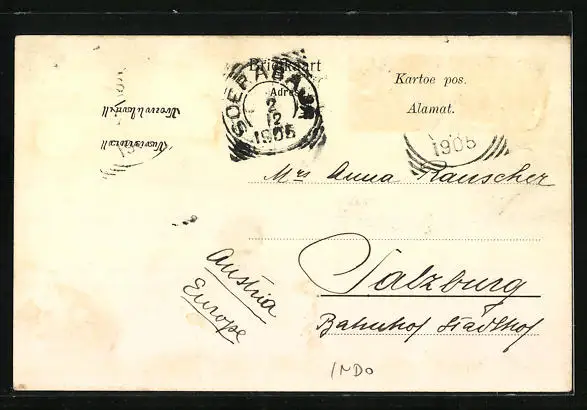 Briefkaart
Adre
Kartoe pos.
Alamat.
SOERABAJA
2
12
1905
1905
Mrs Anna Rauscher
Salzburg
Bahnhof Stadthof
Austria
Europe
INDO